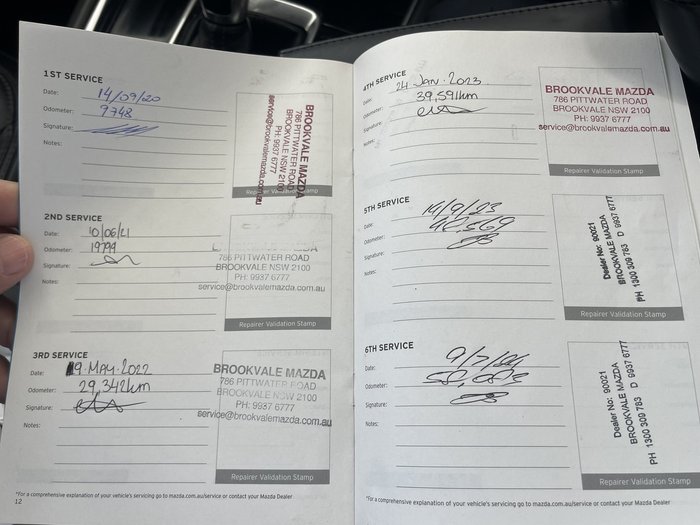 1ST SERVICE
Date: 14/09/20
Odometer: 9748
Signature:
Notes:
BROOKVALE MAZDA
786 PITTWATER ROAD
BROOKVALE NSW 2100
PH: 9937 6777
service@brookvalemazda.com.au
Repairer Validation Stamp
2ND SERVICE
Date: 10/06/21
Odometer: 19799
Signature:
Notes:
786 PITTWATER ROAD
BROOKVALE NSW 2100
PH: 9937 6777
service@brookvalemazda.com.au
Repairer Validation Stamp
3RD SERVICE
Date: 19 MAY 2022
Odometer: 29,342km
Signature:
Notes:
BROOKVALE MAZDA
786 PITTWATER ROAD
BROOKVALE NSW 2100
PH: 9937 6777
service@brookvalemazda.com.au
Repairer Validation Stamp
*For a comprehensive explanation of your vehicle's servicing go to mazda.com.au/service or contact your Mazda Dealer
12
4TH SERVICE
Date: 24 Jan 2023
Odometer: 39,591km
Signature:
Notes:
BROOKVALE MAZDA
786 PITTWATER ROAD
BROOKVALE NSW 2100
PH: 9937 6777
service@brookvalemazda.com.au
Repairer Validation Stamp
5TH SERVICE
Date: 14/9/23
Odometer:
Signature:
Notes:
Dealer No: 90021
BROOKVALE MAZDA
PH 1300 309 783 D 9937 6777
Repairer Validation Stamp
6TH SERVICE
Date: 9/7/24
Odometer:
Signature:
Notes:
Dealer No: 90021
BROOKVALE MAZDA
PH 1300 309 783 D 9937 6777
Repairer Validation Stamp
*For a comprehensive explanation of your vehicle's servicing go to mazda.com.au/service or contact your Mazda Dealer